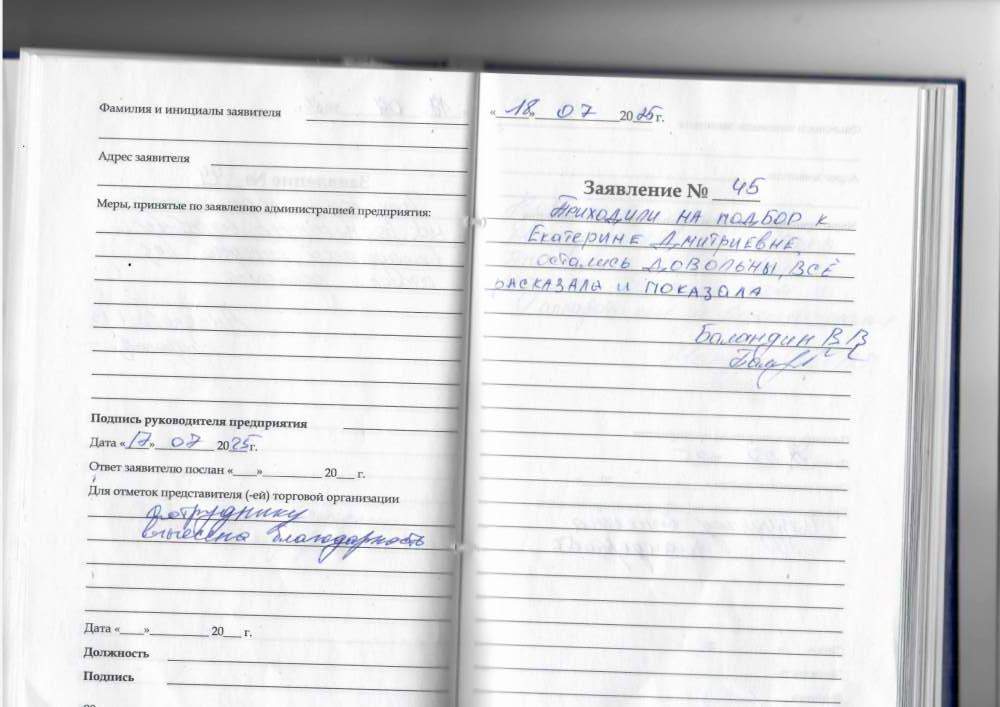 Фамилия и инициалы заявителя
Адрес заявителя
Меры, принятые по заявлению администрацией предприятия:
Подпись руководителя предприятия
Дата «17» 07 2025г.
Ответ заявителю послан «    »            20    г.
Для отметок представителя (-ей) торговой организации
сотруднику
вынесена благодарность
Дата «    »            20    г.
Должность
Подпись
«18» 07 2025г.
Заявление № 45
Приходили на подбор к
Екатерине Дмитриевне,
остались довольны, всё
расказала и показала
Баландин В.В.